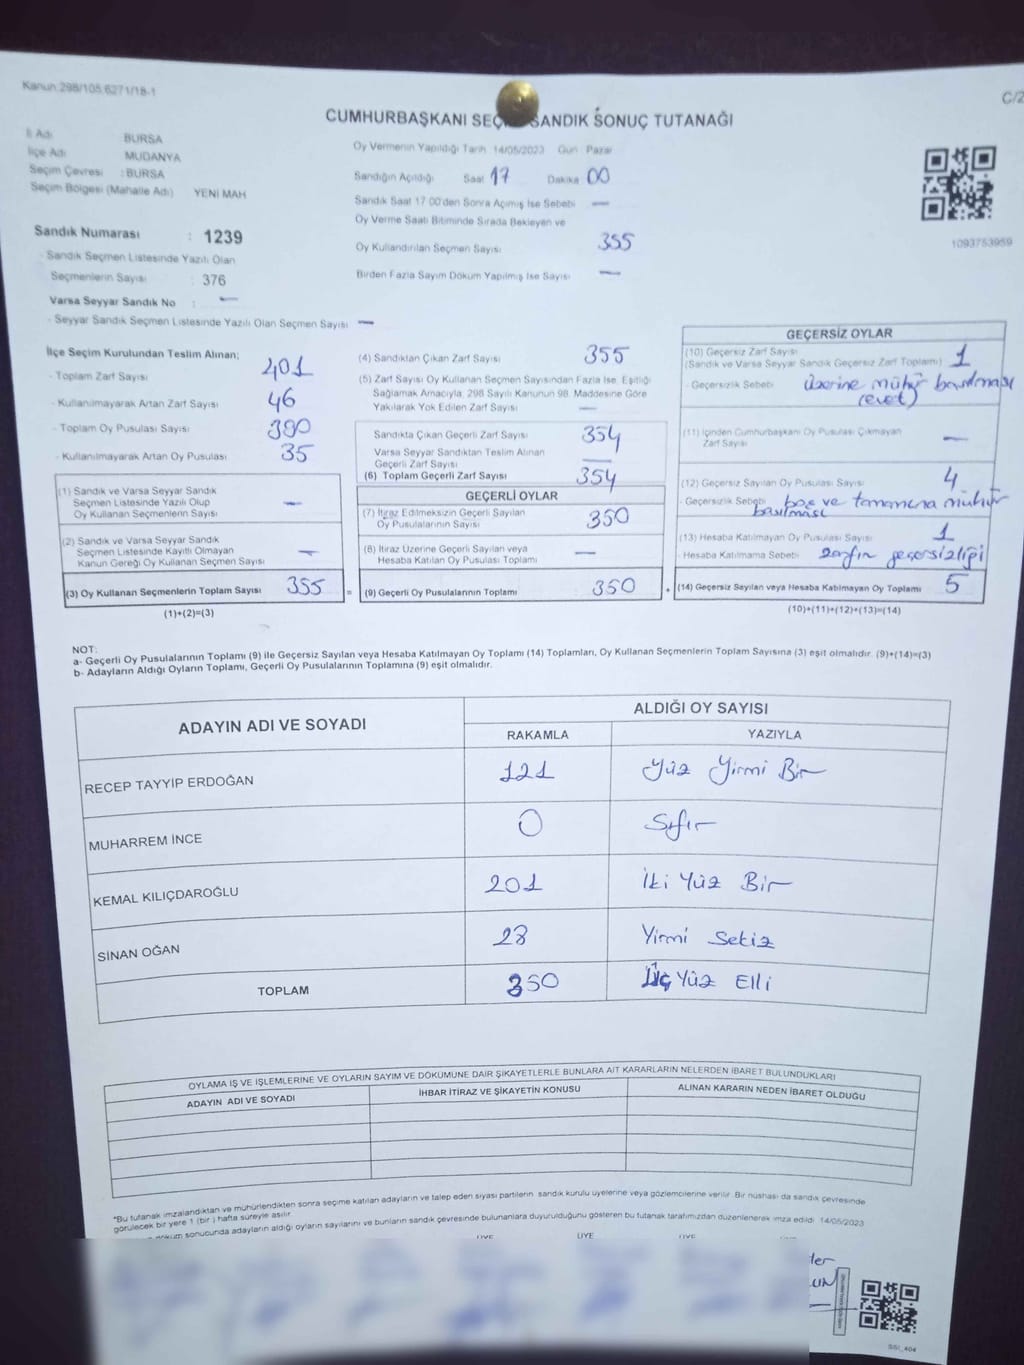 Kanun:298/105.6271/18-1
C/2
CUMHURBAŞKANI SANDIK SONUÇ TUTANAĞI
İl Adı BURSA
İlçe Adı MUDANYA
Seçim Çevresi : BURSA
Seçim Bölgesi (Mahalle Adı) YENİ MAH
Sandık Numarası : 1239
- Sandık Seçmen Listesinde Yazılı Olan
Seçmenlerin Sayısı : 376
Varsa Seyyar Sandık No : —
- Seyyar Sandık Seçmen Listesinde Yazılı Olan Seçmen Sayısı —
Oy Vermenin Yapıldığı Tarih 14/05/2023 Gün Pazar
Sandığın Açıldığı Saat 17 Dakika 00
Sandık Saat 17.00'den Sonra Açılmış İse Sebebi —
Oy Verme Saati Bitiminde Sırada Bekleyen ve
Oy Kullandırılan Seçmen Sayısı 355
Birden Fazla Sayım Döküm Yapılmış İse Sayısı —
1093753959
İlçe Seçim Kurulundan Teslim Alınan;
- Toplam Zarf Sayısı 401
- Kullanılmayarak Artan Zarf Sayısı 46
- Toplam Oy Pusulası Sayısı 390
- Kullanılmayarak Artan Oy Pusulası 35
(1) Sandık ve Varsa Seyyar Sandık
Seçmen Listesinde Yazılı Olup
Oy Kullanan Seçmenlerin Sayısı —
(2) Sandık ve Varsa Seyyar Sandık
Seçmen Listesinde Kayıtlı Olmayan
Kanun Gereği Oy Kullanan Seçmen Sayısı —
(3) Oy Kullanan Seçmenlerin Toplam Sayısı 355 =
(1)+(2)=(3)
(4) Sandıktan Çıkan Zarf Sayısı 355
(5) Zarf Sayısı Oy Kullanan Seçmen Sayısından Fazla İse, Eşitliği
Sağlamak Amacıyla, 298 Sayılı Kanunun 98. Maddesine Göre
Yakılarak Yok Edilen Zarf Sayısı —
Sandıkta Çıkan Geçerli Zarf Sayısı 354
Varsa Seyyar Sandıktan Teslim Alınan
Geçerli Zarf Sayısı —
(6) Toplam Geçerli Zarf Sayısı 354
GEÇERLİ OYLAR
(7) İtiraz Edilmeksizin Geçerli Sayılan
Oy Pusulalarının Sayısı 350
(8) İtiraz Üzerine Geçerli Sayılan veya
Hesaba Katılan Oy Pusulası Toplamı —
(9) Geçerli Oy Pusulalarının Toplamı 350 +
GEÇERSİZ OYLAR
(10) Geçersiz Zarf Sayısı
(Sandık ve Varsa Seyyar Sandık Geçersiz Zarf Toplamı) 1
- Geçersizlik Sebebi üzerine mühür basılması
(evet)
(11) İçinden Cumhurbaşkanı Oy Pusulası Çıkmayan
Zarf Sayısı —
(12) Geçersiz Sayılan Oy Pusulası Sayısı 4
- Geçersizlik Sebebi boş ve tamamına mühür
basılması
(13) Hesaba Katılmayan Oy Pusulası Sayısı 1
- Hesaba Katılmama Sebebi zarfın geçersizliği
(14) Geçersiz Sayılan veya Hesaba Katılmayan Oy Toplamı 5
(10)+(11)+(12)+(13)=(14)
NOT:
a- Geçerli Oy Pusulalarının Toplamı (9) ile Geçersiz Sayılan veya Hesaba Katılmayan Oy Toplamı (14) Toplamları, Oy Kullanan Seçmenlerin Toplam Sayısına (3) eşit olmalıdır. (9)+(14)=(3)
b- Adayların Aldığı Oyların Toplamı, Geçerli Oy Pusulalarının Toplamına (9) eşit olmalıdır.
ADAYIN ADI VE SOYADI ALDIĞI OY SAYISI
RAKAMLA YAZIYLA
RECEP TAYYİP ERDOĞAN 121 Yüz Yirmi Bir
MUHARREM İNCE 0 Sıfır
KEMAL KILIÇDAROĞLU 201 İki Yüz Bir
SİNAN OĞAN 28 Yirmi Sekiz
TOPLAM 350 Üç Yüz Elli
OYLAMA İŞ VE İŞLEMLERİNE VE OYLARIN SAYIM VE DÖKÜMÜNE DAİR ŞİKAYETLERLE BUNLARA AİT KARARLARIN NELERDEN İBARET BULUNDUKLARI
ADAYIN ADI VE SOYADI İHBAR İTİRAZ VE ŞİKAYETİN KONUSU ALINAN KARARIN NEDEN İBARET OLDUĞU
*Bu tutanak imzalandıktan ve mühürlendikten sonra seçime katılan adayların ve talep eden siyasi partilerin sandık kurulu üyelerine veya gözlemcilerine verilir. Bir nüshası da sandık çevresinde
görülecek bir yere 1 (bir) hafta süreyle asılır.
sonucunda adayların aldığı oyların sayılarını ve bunların sandık çevresinde bulunanlara duyurulduğunu gösteren bu tutanak tarafımızdan düzenlenerek imza edildi. 14/05/2023
ÜYE ÜYE ÜYE
SSİ_404